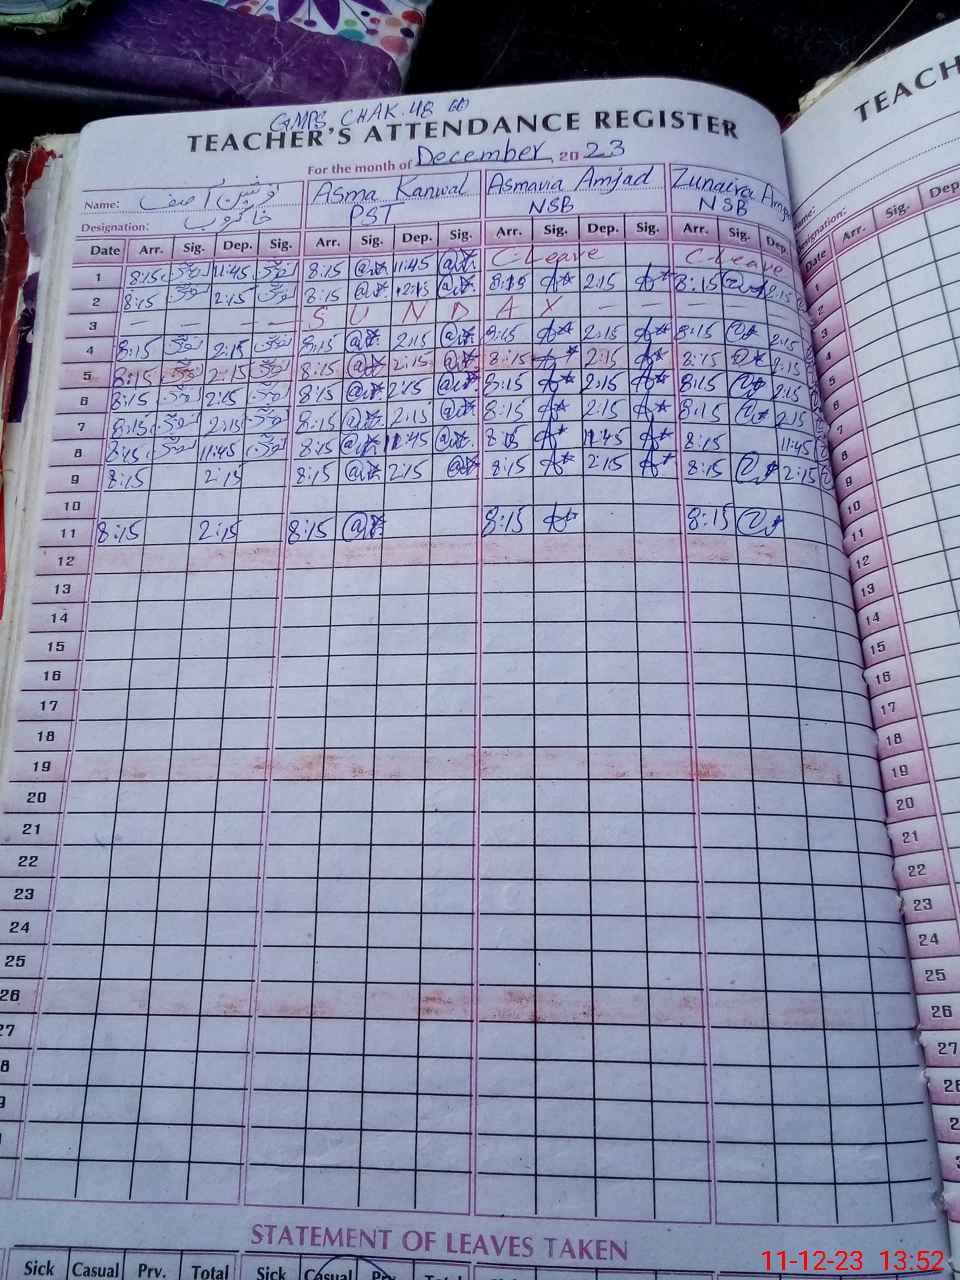 GMPS CHAK.48
TEACHER'S ATTENDANCE REGISTER
For the month of December 2023
Name: Asma Kanwal Asmavia Amjad Zunaira
Designation: PST NSB NSB
Date Arr. Sig. Dep. Sig. Arr. Sig. Dep. Sig. Arr. Sig. Dep. Sig. Arr. Sig. Dep.
1 8:15 11:45 8:15 11:45 C-Leave C-Leave
2 8:15 2:15 8:15 2:15 8:15 2:15 8:15 2:15
3 — — — — S U N D A Y — — — —
4 8:15 2:15 8:15 2:15 8:15 2:15 8:15 2:15
5 8:15 2:15 8:15 2:15 8:15 2:15 8:15 2:15
6 8:15 2:15 8:15 2:15 8:15 2:15 8:15 2:15
7 8:15 2:15 8:15 2:15 8:15 2:15 8:15 2:15
8 11:45 8:15 11:45 8:15 11:45 8:15 11:45
9 8:15 2:15 8:15 2:15 8:15 2:15 8:15 2:15
10
11 8:15 2:15 8:15 8:15 8:15
12
13
14
15
16
17
18
19
20
21
22
23
24
25
26
27
8
9
STATEMENT OF LEAVES TAKEN
Sick Casual Prv. Total Sick Casual Prv. Total
TEACH
Designation:
Date Arr. Sig. Dep
1
2
3
4
5
6
7
8
9
10
11
12
13
14
15
16
17
18
19
20
21
22
23
24
25
26
27
11-12-23 13:52